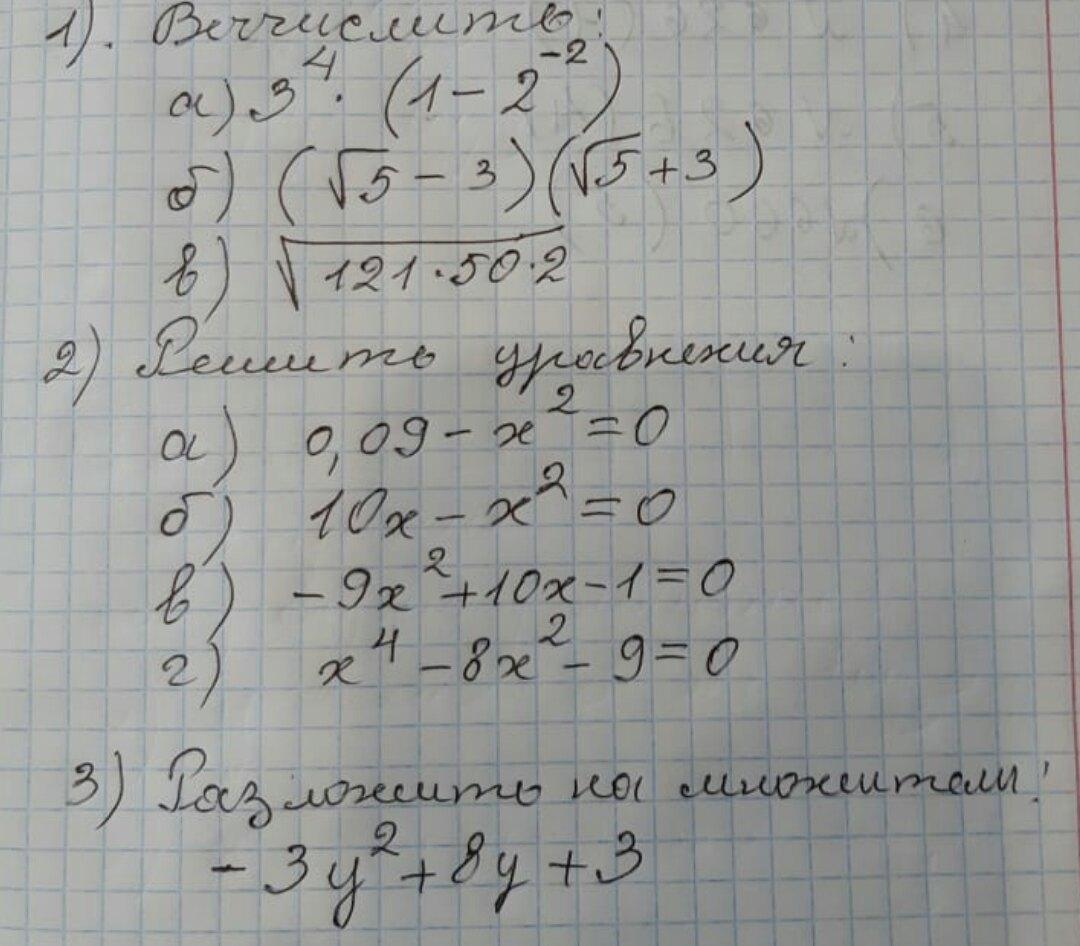 1). Вычислить:
а) 3⁴ · (1 – 2⁻²)
б) (√5 – 3)(√5 + 3)
в) √(121·50·2)
2) Решить уравнения:
а) 0,09 – x² = 0
б) 10x – x² = 0
в) –9x² + 10x – 1 = 0
г) x⁴ – 8x² – 9 = 0
3) Разложить на множители:
– 3y² + 8y + 3